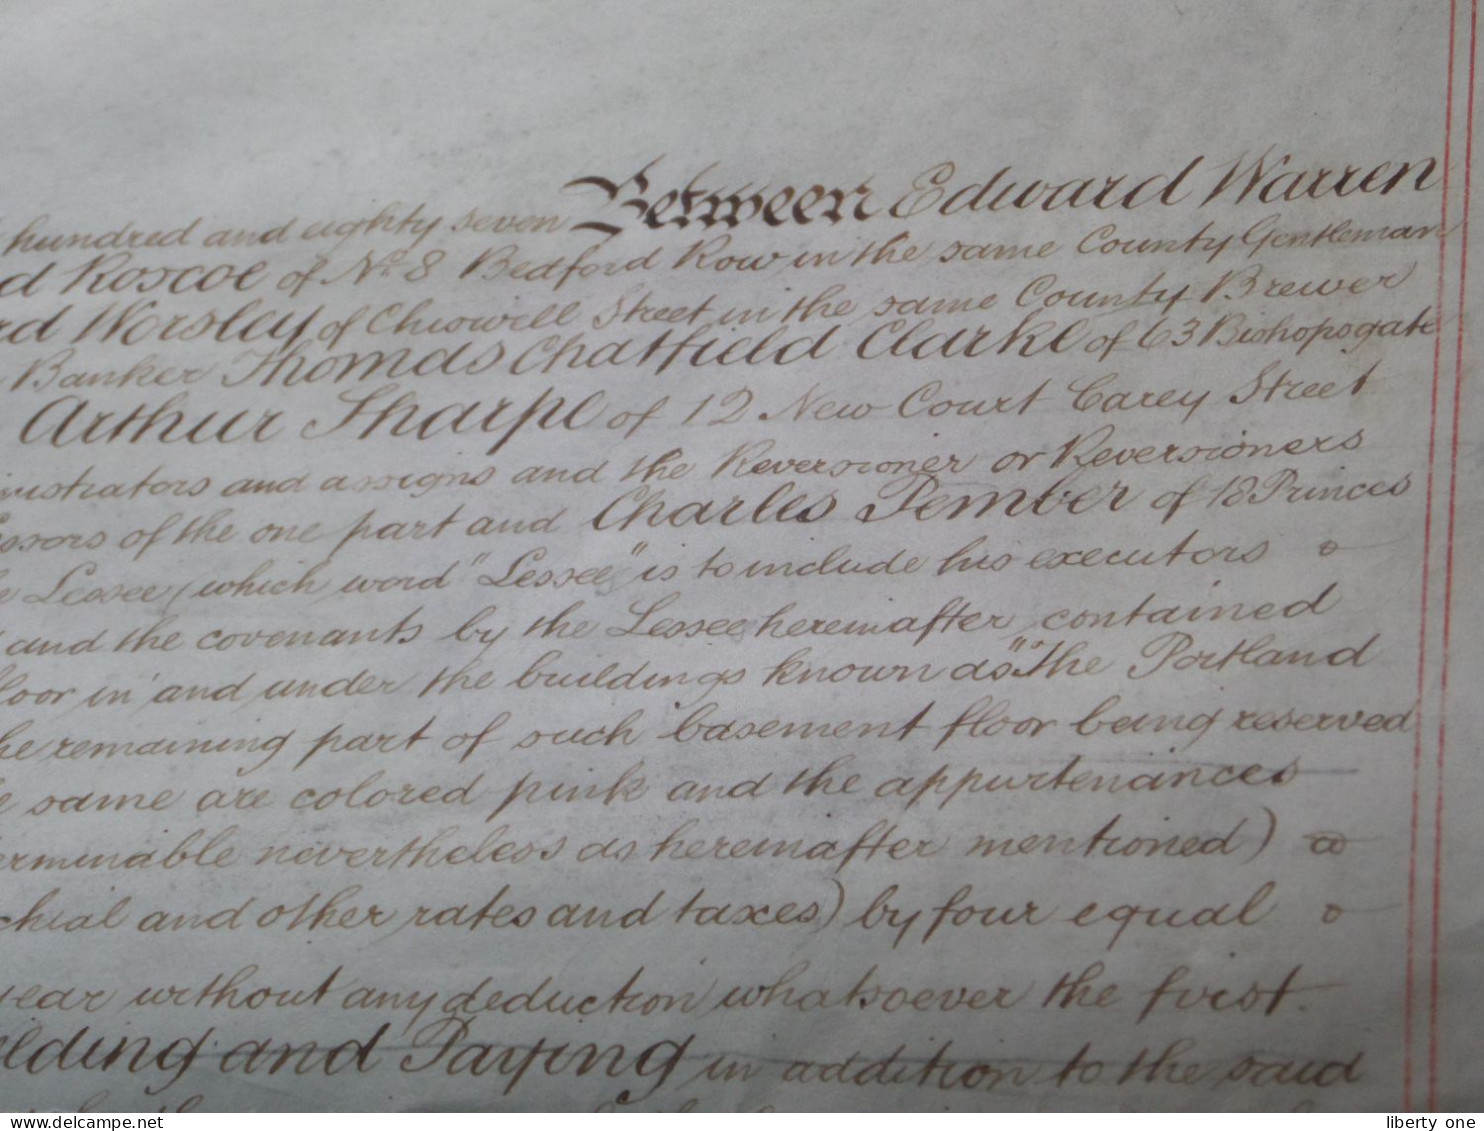 hundred and eighty seven Between Edward Warren
Roscoe of No. 8 Bedford Row in the same County Gentleman
Worsley of Chiswell Street in the same County Brewer
Banker Thomas Chatfield Clarke of 63 Bishopsgate
Arthur Sharpe of 12 New Court Carey Street
and assigns and the Reversioner or Reversioners
of the one part and Charles Pember of 18 Princes
Lessee (which word "Lessee" is to include his executors
and the covenants by the Lessee hereinafter contained
floor in and under the buildings known as "The Portland
remaining part of such basement floor being reserved
same are colored pink and the appurtenances
nevertheless as hereinafter mentioned)
and other rates and taxes) by four equal
year without any deduction whatsoever the first
and Paying in addition to the said
delcampe.net
liberty one